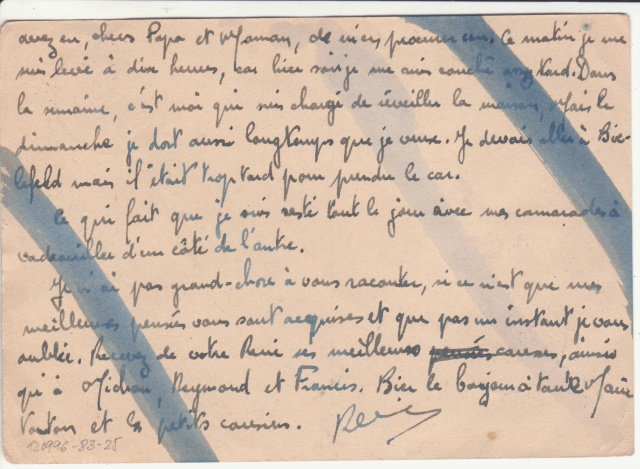 avez eu, chers Papa et Maman, de m'en procurer un. Ce matin je me
suis levé à dix heures, car hier soir je me suis couché assez tard. Dans
la semaine, c'est moi qui suis chargé de réveiller la maison, Mais le
dimanche je dort aussi longtemps que je veux. Je devais aller à Bie-
lefeld mais il était trop tard pour prendre le car.
Ce qui fait que je suis resté tout le jour avec mes camarades à
d'un côté de l'autre.
Je n'ai pas grand-chose à vous raconter, si ce n'est que mes
meilleures pensées vous sont acquises et que pas un instant je vous
oublie. Recevez de votre René ses meilleures caresses, ainsi
qu'à Michou, Raymond et Francis. Bien le bonjour à tante Marie
Tonton et les petits cousins. René
120996-83-25